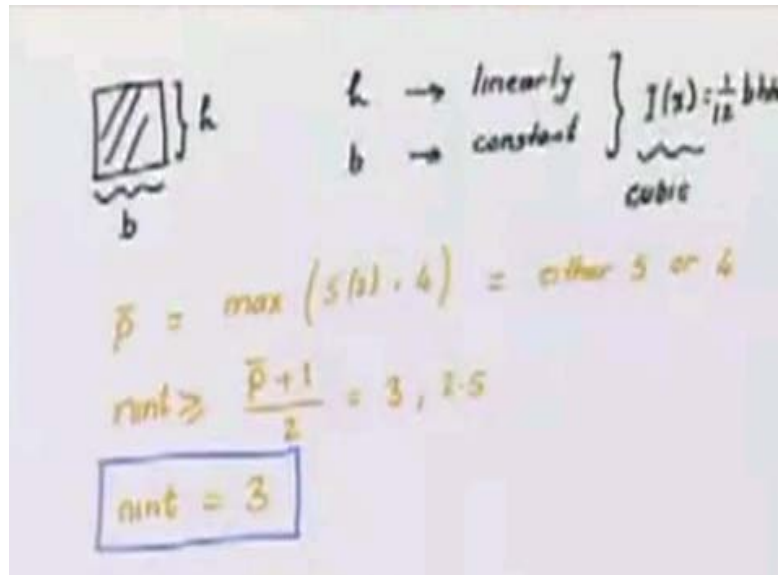 h
h → linearly
b → constant
I(x) = 1/12 b
cubic
b
p̄ = max ( , 4) = either 5 or 4
nint ≥ (p̄ + 1)/2 = 3, 2.5
nint = 3